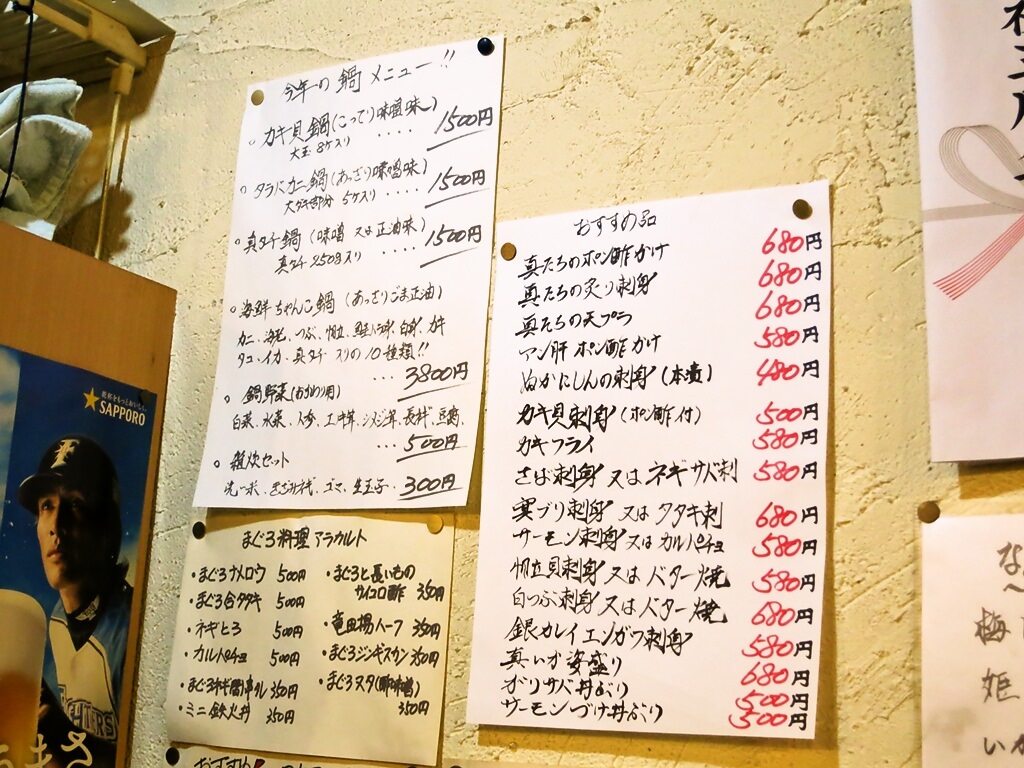 今年の鍋メニュー!!
○カキ貝鍋(こってり味噌味)
大玉8ケ入り ････ 1500円
○タラバカニ鍋(あっさり味噌味)
大ダキ部分 5ケ入り ････ 1500円
○真タチ鍋(味噌又は正油味)
真タチ250g入り 1500円
○海鮮ちゃんこ鍋(あっさりごま正油)
カニ、海老、つぶ、帆立、
タコ、イカ、真タチ入りの10種類!!
･･･3800円
○鍋野菜(おかわり用)
白菜、水菜、人参、エノキ茸、シメジ茸、長ネギ、豆腐、
･･･500円
○雑炊セット
洗い米、きざみネギ、ゴマ、生玉子、300円
まぐろ料理 アラカルト
・まぐろナメロウ 500円
・まぐろ合タタキ 500円
・ネギトロ 500円
・カルパチョ 500円
・まぐろネギ間串ル 350円
・ミニ鉄火丼 350円
・まぐろと長いもの
サイコロ酢 350円
・竜田揚ハーフ 350円
・まぐろジンギスカン 350円
・まぐろヌタ(酢味噌)
350円
おすすめ品
真たちのポン酢かけ 680円
真たちの炙り刺身 680円
真たちの天プラ 680円
アン肝ポン酢かけ 580円
ぬかにしんの刺身(本漬) 480円
カキ貝刺身(ポン酢付) 500円
カキフライ 580円
さば刺身又はネギサバ刺 580円
寒ブリ刺身又はタタキ刺 680円
サーモン刺身又はカルパチョ 580円
帆立貝刺身又はバター焼 580円
白つぶ刺身又はバター焼 680円
銀カレイエンガワ刺身 580円
真いか姿盛り 680円
ガリサバ丼ぶり 500円
サーモンづけ丼ぶり 500円
乾杯をもっとおいしく。
SAPPORO
F
FIGHTERS
梅
姫
いか